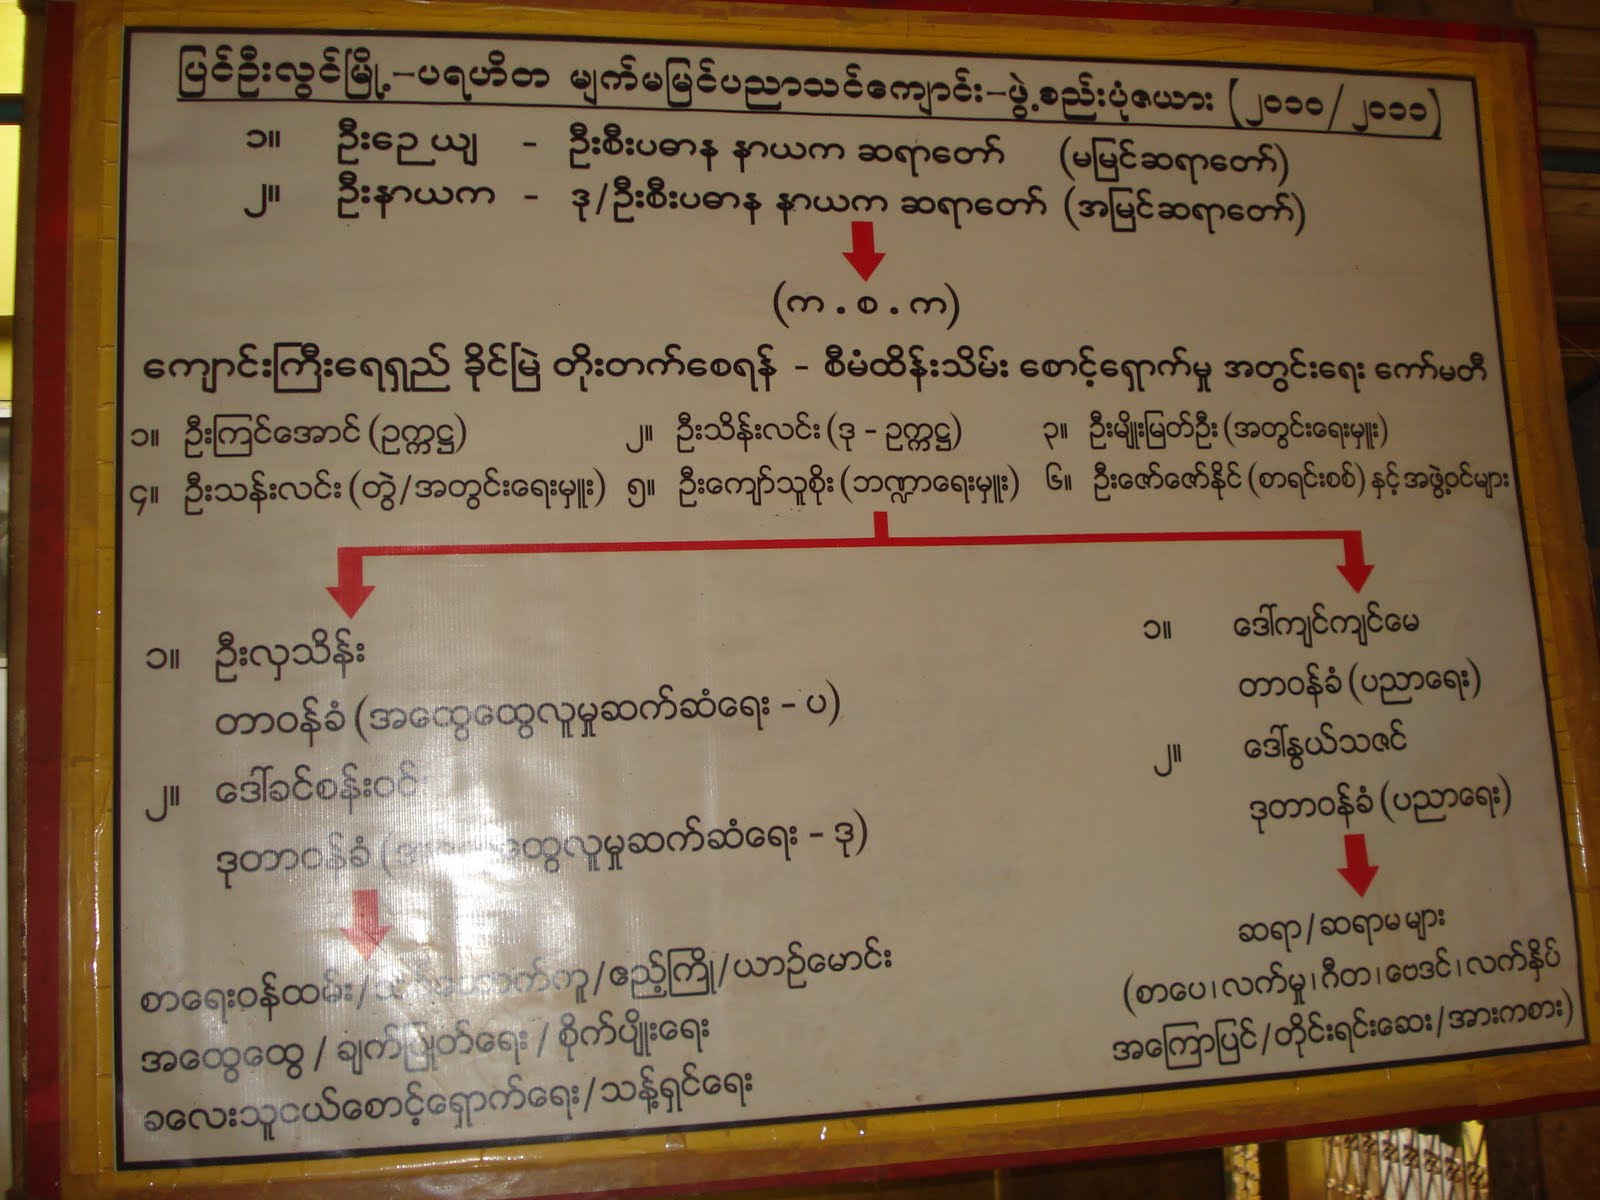 ပြင်ဦးလွင်မြို့-ပရဟိတ မျက်မမြင်ပညာသင်ကျောင်း-ဖွဲ့စည်းပုံဇယား (၂၀၁၀/၂၀၁၁)
၁။ ဦးဉေယျ - ဦးစီးပဓာန နာယက ဆရာတော် (မမြင်ဆရာတော်)
၂။ ဦးနာယက - ဒု/ဦးစီးပဓာန နာယက ဆရာတော် (အမြင်ဆရာတော်)
(က . စ . က)
ကျောင်းကြီးရေရှည် ခိုင်မြဲ တိုးတက်စေရန် - စီမံထိန်းသိမ်း စောင့်ရှောက်မှု အတွင်းရေး ကော်မတီ
၁။ ဦးကြင်အောင် (ဥက္ကဋ္ဌ) ၂။ ဦးသိန်းလင်း (ဒု - ဥက္ကဋ္ဌ) ၃။ ဦးမျိုးမြတ်ဦး (အတွင်းရေးမှူး)
၄။ ဦးသန်းလင်း (တွဲ/အတွင်းရေးမှူး) ၅။ ဦးကျော်သူစိုး (ဘဏ္ဍာရေးမှူး) ၆။ ဦးဇော်ဇော်နိုင် (စာရင်းစစ်) နှင့် အဖွဲ့ဝင်များ
၁။ ဦးလှသိန်း
တာဝန်ခံ (အထွေထွေလူမှုဆက်ဆံရေး - ပ)
၂။ ဒေါ်ခင်စန်းဝင်း
ဒုတာဝန်ခံ (အထွေထွေလူမှုဆက်ဆံရေး - ဒု)
စာရေးဝန်ထမ်း/ /ဧည့်ကြို/ယာဉ်မောင်း
အထွေထွေ / ချက်ပြုတ်ရေး / စိုက်ပျိုးရေး
ခလေးသူငယ်စောင့်ရှောက်ရေး/သန့်ရှင်ရေး
၁။ ဒေါ်ကျင်ကျင်မေ
တာဝန်ခံ (ပညာရေး)
၂။ ဒေါ်နွယ်သဇင်
ဒုတာဝန်ခံ (ပညာရေး)
ဆရာ/ဆရာမများ
(စာပေ၊လက်မှု၊ဂီတ၊ဗေဒင်၊လက်နှိပ်
အကြောပြင်/တိုင်းရင်းဆေး/အားကစား)